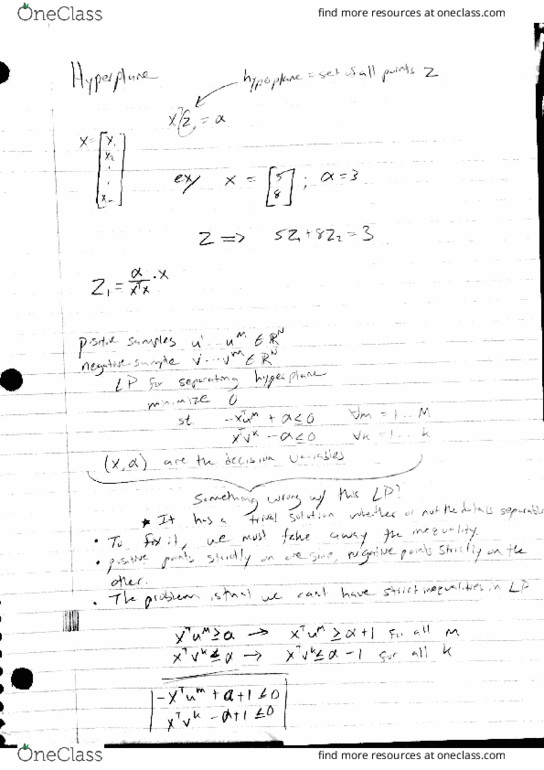 OneClass
find more resources at oneclass.com
Hyperplane
hyperplane = set of all points z
xᵀz = α
x = [x₁ x₂ . . . xₙ]
ex/ x = [5 8] ; α = 3
z ⇒ 5z₁ + 8z₂ = 3
z₁ = α/xᵀx · x
positive samples u¹ ... uᴹ ∈ ℝᴺ
negative sample v¹ ... vᵐ ∈ ℝᴺ
LP for separating hyperplane
minimize 0
st -xᵀuᵐ + α ≤ 0 ∀m = 1 ... M
xᵀvᵏ - α ≤ 0 ∀k = 1 ... k
(x, α) are the decision variables
Something wrong w/ this LP?
* It has a trivial solution whether or not the data is separable
• To fix it, we must take away the inequality.
• positive points strictly on one side, negative points strictly on the
other.
• The problem is that we can't have strict inequalities in LP
xᵀuᵐ ≥ α → xᵀuᵐ ≥ α + 1 for all m
xᵀvᵏ ≤ α → xᵀvᵏ ≤ α - 1 for all k
-xᵀuᵐ + α + 1 ≤ 0
xᵀvᵏ - α + 1 ≤ 0
OneClass
find more resources at oneclass.com